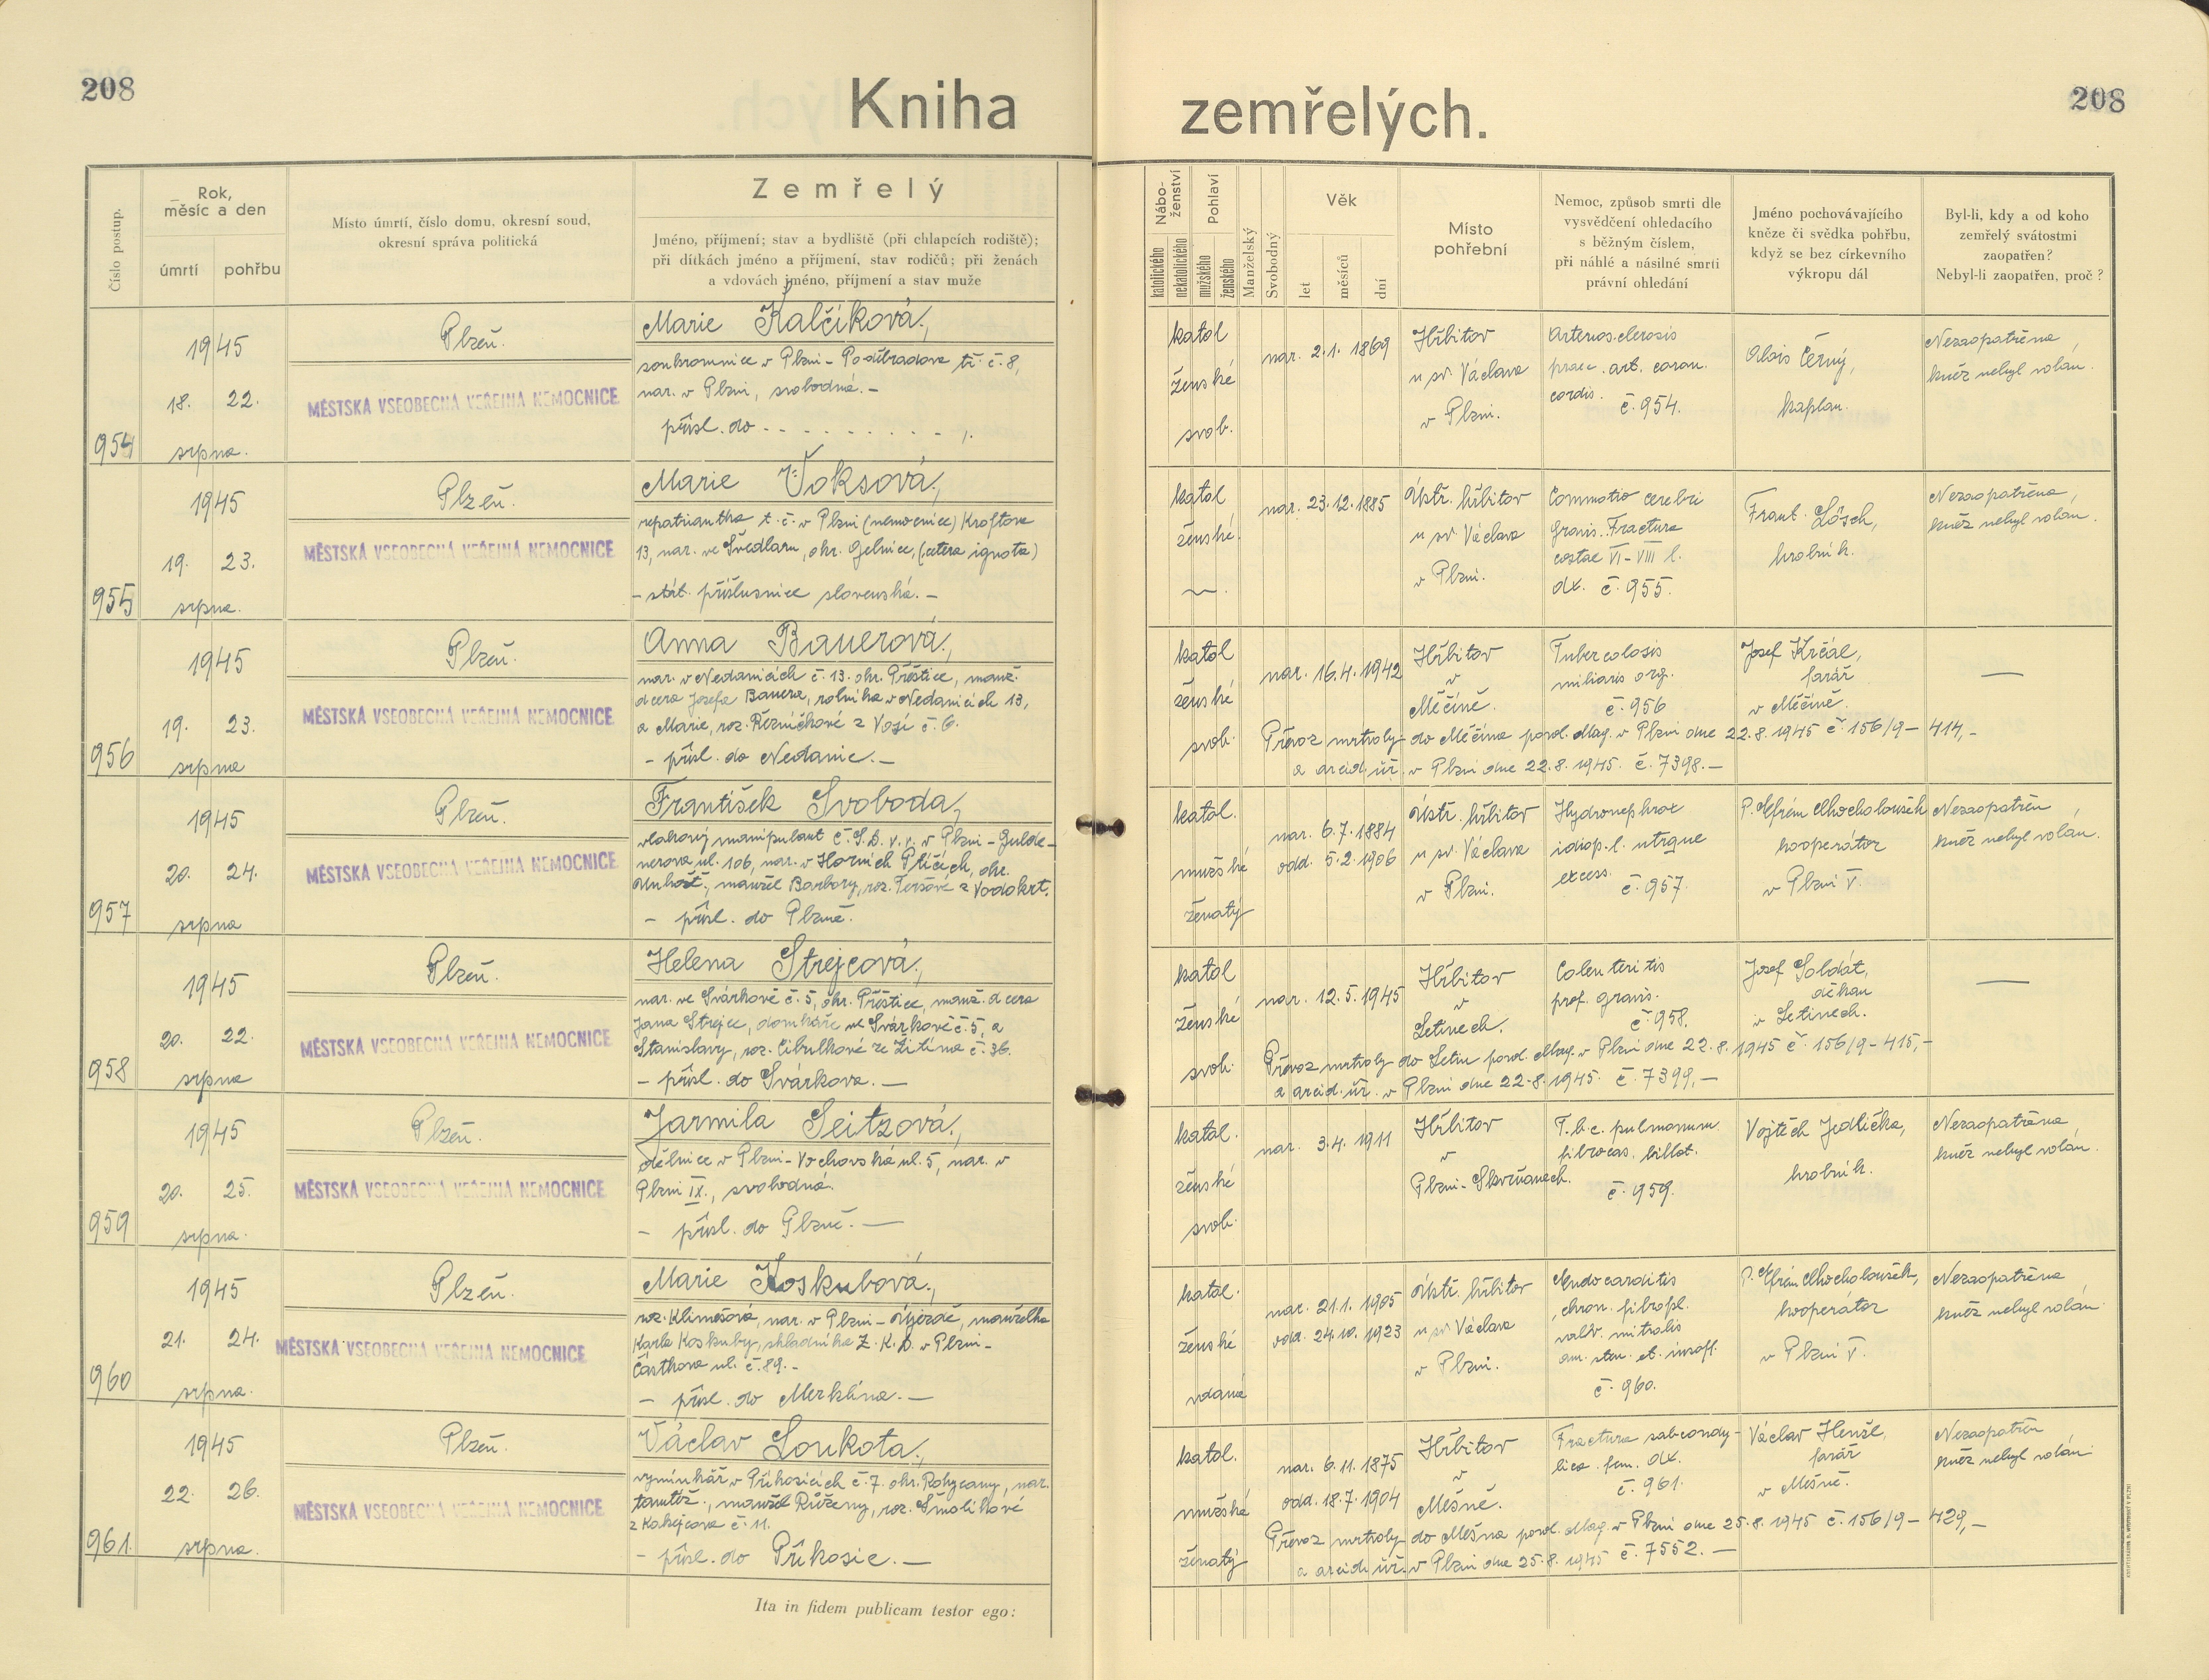 208
Kniha zemřelých.
208
Číslo postup.
Rok, měsíc a den
úmrtí
pohřbu
Místo úmrtí, číslo domu, okresní soud,
okresní správa politická
Zemřelý
Jméno, příjmení; stav a bydliště (při chlapcích rodiště);
při dítkách jméno a příjmení, stav rodičů; při ženách
a vdovách jméno, příjmení a stav muže
Nábo-
ženství
katolického
nekatolického
Pohlaví
mužského
ženského
Manželský
Svobodný
Věk
let
měsíců
dní
Místo
pohřební
Nemoc, způsob smrti dle
vysvědčení ohledacího
s běžným číslem,
při náhlé a násilné smrti
právní ohledání
Jméno pochovávajícího
kněze či svědka pohřbu,
když se bez církevního
výkropu dál
Byl-li, kdy a od koho
zemřelý svátostmi
zaopatřen?
Nebyl-li zaopatřen, proč?
954
1945
18. 22.
srpna.
Plzeň.
MĚSTSKÁ VŠEOBECNÁ VEŘEJNÁ NEMOCNICE
Marie Kalčíková,
soukromnice v Plzni - Poděbradova tř. č. 8,
nar. v Plzni, svobodná. -
přísl. do - - - - - - - - - ,.
katol
ženské
svob.
nar. 2. 1. 1869
Hřbitov
u sv. Václava
v Plzni.
Arterios.clerosis
praec. art. coron.
cordis.
č. 954.
Alois Černý,
kaplan.
Nezaopatřena,
kněz nebyl volán.
955
1945
19. 23.
srpna.
Plzeň.
MĚSTSKÁ VŠEOBECNÁ VEŘEJNÁ NEMOCNICE
Marie Voksová,
repatriantka t. č. v Plzni (nemocnice) Kroftova
13, nar. ve Švedlaru, okr. Gelnice, (cetera ignota)
- stát. příslusnice slovenská. -
katol
ženské.
~.
nar. 23. 12. 1885
Ústř. hřbitov
u sv. Václava
v Plzni.
Commotio cerebri
gravis. Fractura
costae VI - VIII l.
dx. č. 955.
Frant. Lösch,
hrobník.
Nezaopatřena,
kněz nebyl volán.
956
1945
19. 23.
srpna
Plzeň.
MĚSTSKÁ VŠEOBECNÁ VEŘEJNÁ NEMOCNICE
Anna Bauerová,
nar. v Nedanicích č. 13. okr. Přeštice, manž.
dcera Josefa Bauera, rolníka v Nedanicích 13,
a Marie, roz. Řezníčkové z Vojí č. 6.
- přísl. do Nedanic. -
katol
ženské
svob.
nar. 16. 4. 1942
Hřbitov
v
Měčíně.
Tubercolosis
miliaris org.
č. 956
Josef Krčál,
farář
v Měčíně.
—
Převoz mrtvoly do Měčína povol. Mag. v Plzni dne 22. 8. 1945 č. 156/9 - 414,-
a arcid. úř. v Plzni dne 22. 8. 1945. č. 7398. -
957
1945
20. 24.
srpna
Plzeň.
MĚSTSKÁ VŠEOBECNÁ VEŘEJNÁ NEMOCNICE
František Svoboda,
vlakový manipulant Č.S.D. v. v. v Plzni - Gulde-
nerova ul. 106, nar. v Horních Plíčích, okr.
manžel Barbory, roz. Teršové z Vodokrt.
- přísl. do Plzně.
katol.
mužské
ženatý
nar. 6. 7. 1884
odd. 5. 2. 1906
Ústř. hřbitov
u sv. Václava
v Plzni.
Hydronephrox
idiop. l. utrque
excess.
č. 957.
P. Efrém Chocholoušek
kooperátor
v Plzni V.
Nezaopatřen,
kněz nebyl volán.
958
1945
20. 22.
srpna
Plzeň.
MĚSTSKÁ VŠEOBECNÁ VEŘEJNÁ NEMOCNICE
Helena Strejcová,
nar. ve Svárkově č. 5, okr. Přeštice, manž. dcera
Jana Strejce, domkáře ve Svárkově č. 5, a
Stanislavy, roz. Cibulkové ze Žitína č. 36.
- přísl. do Svárkova. -
katol
ženské
svob.
nar. 12. 5. 1945
Hřbitov
v
Letinech.
Colenteritis
prof. gravis.
č. 958.
Josef Soldát,
děkan
v Letinech.
—
Převoz mrtvoly do Letin povol. Mag. v Plzni dne 22. 8. 1945 č. 156/9 - 415,-
a arcid. úř. v Plzni dne 22. 8. 1945. č. 7399,-
959
1945
20. 25.
srpna.
Plzeň.
MĚSTSKÁ VŠEOBECNÁ VEŘEJNÁ NEMOCNICE
Jarmila Seitzová,
dělnice v Plzni - Vochovská ul. 5, nar. v
Plzni IX., svobodná.
- přísl. do Plzně. -
katol.
ženské
svob.
nar. 3. 4. 1911
Hřbitov
v
Plzni - Skvrňanech.
T.b.c. pulmonum
fibrocas. billat.
č. 959.
Vojtěch Jedlička,
hrobník.
Nezaopatřena
kněz nebyl volán.
960
1945
21. 24.
srpna.
Plzeň.
MĚSTSKÁ VŠEOBECNÁ VEŘEJNÁ NEMOCNICE
Marie Koskubová,
roz. Klimešová, nar. v Plzni - Újezdě, manželka
Karla Koskuby, skladníka Z.K.D. v Plzni -
Částkova ul. č. 89. -
- přísl. do Merklína. -
katol.
ženské
vdaná
nar. 21. 1. 1905
odd. 24. 10. 1923
Ústř. hřbitov
u sv. Václava
v Plzni.
Endocarditis
chron. fibropl.
valv. mitralis
om. sten. et. insoff.
č. 960.
P. Efrém Chocholoušek,
kooperátor
v Plzni V.
Nezaopatřena,
kněz nebyl volán.
961.
1945
22. 26.
srpna.
Plzeň.
MĚSTSKÁ VŠEOBECNÁ VEŘEJNÁ NEMOCNICE
Václav Loukota,
výminkář v Příkosicích č. 7. okr. Rokycany, nar.
tamtéž., manžel Růženy, roz. Smolíkové
z Kakejcova č. 11.
- přísl. do Příkosic. -
katol.
mužské
ženatý
nar. 6. 11. 1875
odd. 18. 7. 1904
Hřbitov
v
Mešně.
Fractura subcondy-
lica fem. dx.
č. 961.
Václav Henžl,
farář
v Mešně.
Nezaopatřen
kněz nebyl volán.
Převoz mrtvoly do Mešna povol. Mag. v Plzni dne 25. 8. 1945 č. 156/9 - 429,-
a arcid. úř. v Plzni dne 25. 8. 1945 č. 7552. -
Ita in fidem publicam testor ego: